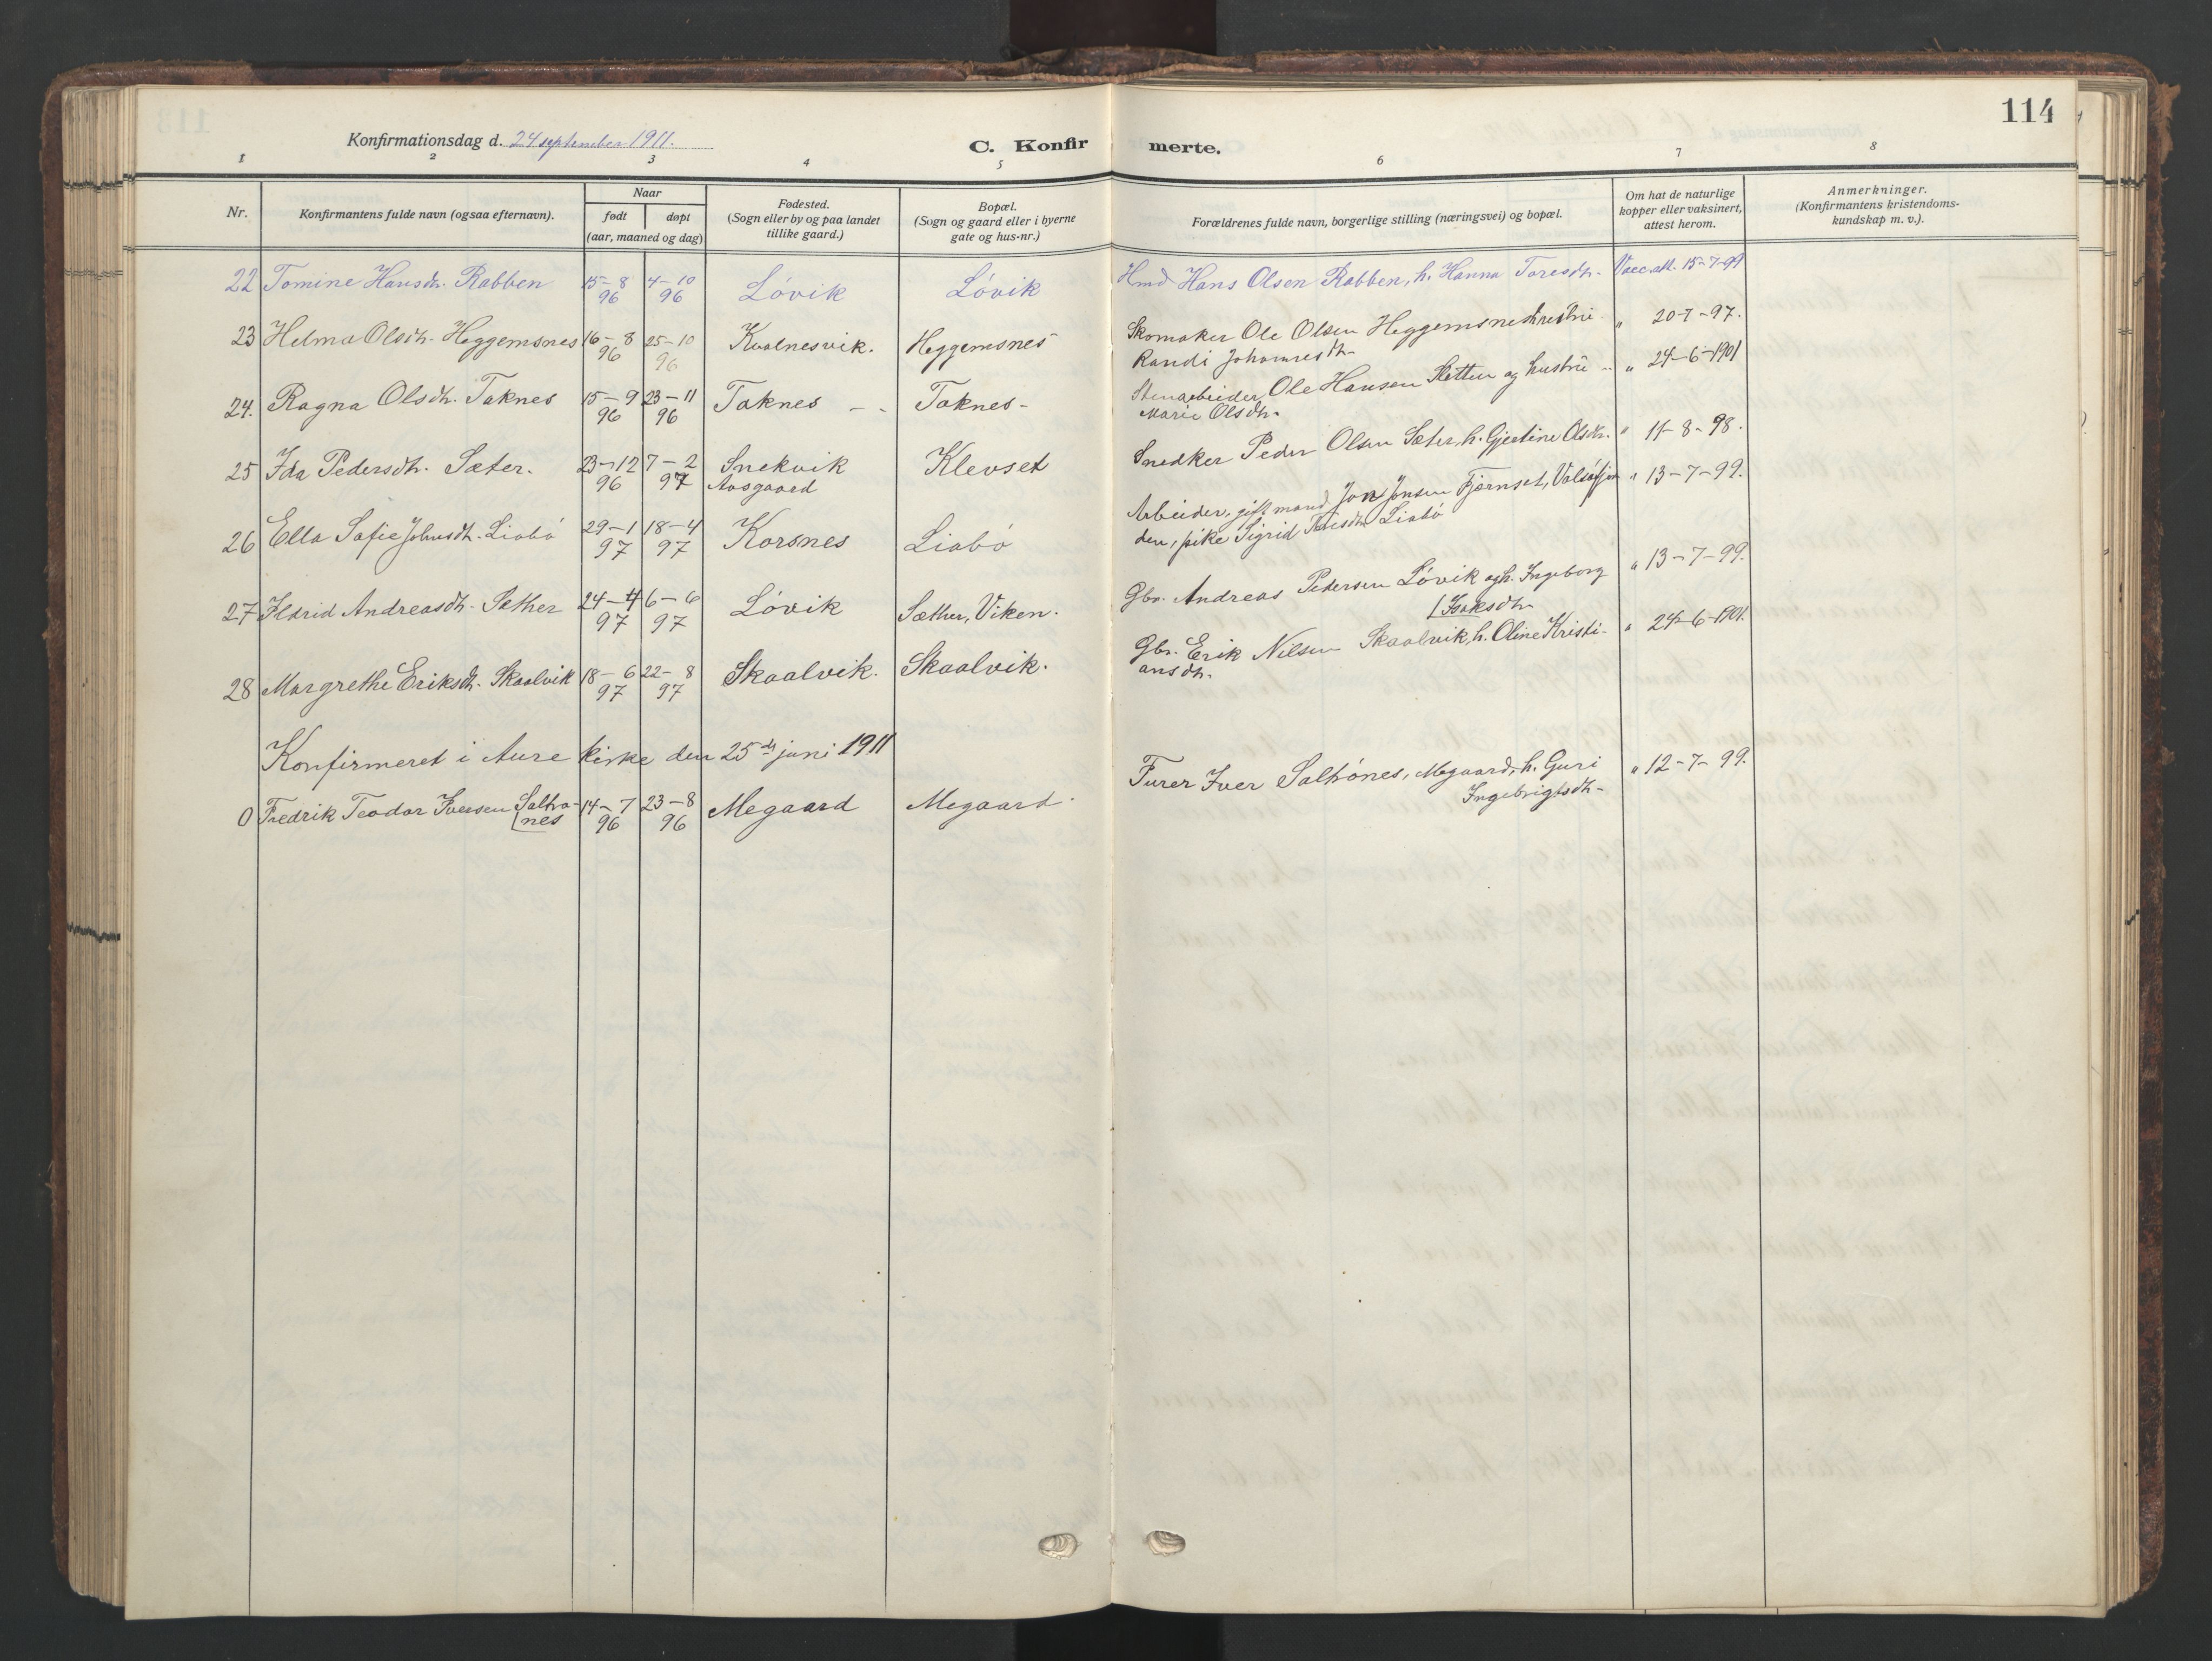 114
Konfirmationsdag d. 24 september 1911.
C. Konfirmerte.
1 2 3 4 5 6 7 8
Nr.
Konfirmantens fulde navn (ogsaa efternavn).
Naar
født døpt
(aar, maaned og dag)
Fødested.
(Sogn eller by og paa landet
tillike gaard.)
Bopæl.
(Sogn og gaard eller i byerne
gate og hus-nr.)
Forældrenes fulde navn, borgerlige stilling (næringsvei) og bopæl.
Om hat de naturlige
kopper eller vaksinert,
attest herom.
Anmerkninger.
(Konfirmantens kristendoms-
kundskap m. v.).
22 Tomine Hansdtr. Rabben 15-8 96 4-10 96 Lóvik Lóvik Hmd Hans Olsen Rabben, h. Hanna Toresdtr. Vacc. att. 15-7-99
23 Helma Olsdtr. Heggemsnes 16-8 96 25-10 96 Kvalnesvik. Heggemsnes Skomaker Ole Olsen Heggemsnes hustru " 20-7-97.
Randi Johannesdtr.
24. Ragna Olsdtr. Taknes 15-9 96 23-11 96 Taknes - - Taknes- Stenarbeider Ole Hansen Sletten og hustru " 24-6-1901
Marie Olsdtr.
25 Ida Pedersdtr. Sæter. 23-12 96 7-2 97 Snekvik Klevset Snedker Peder Olsen Sæter, h. Gjertine Olsdtr. " 11-8-98.
Aasgaard
26 Ella Sofie Johnsdtr. Liabó 29-1 97 18-4 97 Korsnes Liabó Arbeider, gift mand Jon Jonsen Fjærnset, Valsøfjor " 13-7-99.
den, pike Sigrid Toresdtr. Liabó
27 Ildrid Andreasdtr. Sæther 24-4 97 6-6 97 Lóvik Sæther, Viken. Gbr. Andreas Pedersen Lóvik og h. Ingeborg " 13-7-99.
Isaksdtr.
28 Margrethe Eriksdtr. Skaalvik 18-6 97 22-8 97 Skaalvik. Skaalvik. Gbr. Erik Nilsen Skaalvik, h. Oline Kristi- " 24-6-1901.
ansdtr.
Konfirmeret i Aure kirke den 25de juni 1911
0 Fredrik Teodor Iversen Saltrø- 14-7 96 23-8 96 Megaard Megaard Furer Iver Saltrónes, Megaard, h. Guri " 12-7-99.
nes Ingebrigtsdtr.